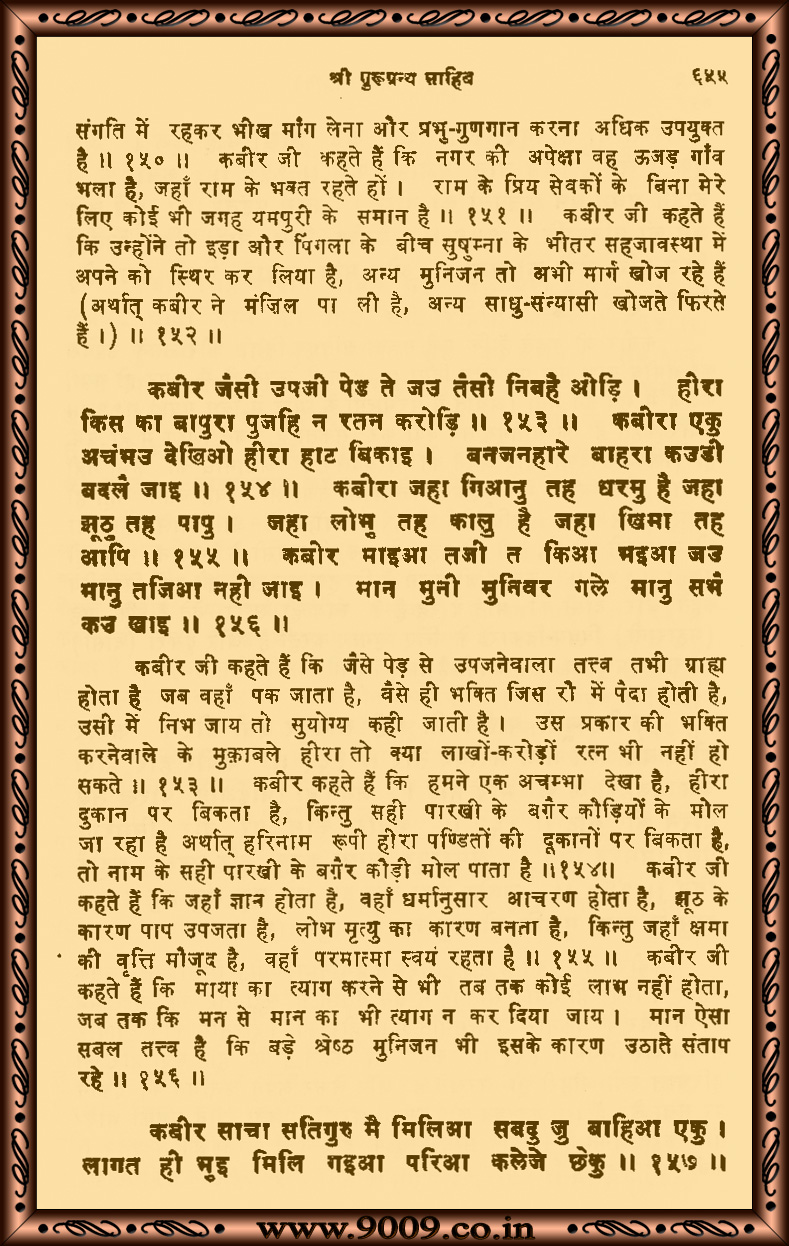 श्री गुरूग्रन्थ साहिब ६५५
संगति में रहकर भीख माँग लेना और प्रभु-गुणगान करना अधिक उपयुक्त
है ॥ १५० ॥ कबीर जी कहते हैं कि नगर की अपेक्षा वह ऊजड़ गाँव
भला है, जहाँ राम के भक्त रहते हों । राम के प्रिय सेवकों के बिना मेरे
लिए कोई भी जगह यमपुरी के समान है ॥ १५१ ॥ कबीर जी कहते हैं
कि उन्होंने तो इड़ा और पिंगला के बीच सुषुम्ना के भीतर सहजावस्था में
अपने को स्थिर कर लिया है, अन्य मुनिजन तो अभी मार्ग खोज रहे हैं
(अर्थात् कबीर ने मंज़िल पा ली है, अन्य साधु-संन्यासी खोजते फिरते
हैं ।) ॥ १५२ ॥
कबीर जैसी उपजी पेड ते जउ तैसी निबहै ओड़ि । हीरा
किस का बापुरा पुजहि न रतन करोड़ि ॥ १५३ ॥ कबीरा एकु
अचंभउ देखिओ हीरा हाट बिकाइ । बनजनहारे बाहरा कउडी
बदलै जाइ ॥ १५४ ॥ कबीरा जहा गिआनु तह धरमु है जहा
झूठु तह पापु । जहा लोभु तह कालु है जहा खिमा तह
आपि ॥ १५५ ॥ कबीर माइआ तजी त किआ भइआ जउ
मानु तजिआ नही जाइ । मान मुनी मुनिवर गले मानु सभै
कउ खाइ ॥ १५६ ॥
कबीर जी कहते हैं कि जैसे पेड़ से उपजनेवाला तत्त्व तभी ग्राह्य
होता है जब वहाँ पक जाता है, वैसे ही भक्ति जिस रौ में पैदा होती है,
उसी में निभ जाय तो सुयोग्य कही जाती है । उस प्रकार की भक्ति
करनेवाले के मुक़ाबले हीरा तो क्या लाखों-करोड़ों रत्न भी नहीं हो
सकते ॥ १५३ ॥ कबीर कहते हैं कि हमने एक अचम्भा देखा है, हीरा
दुकान पर बिकता है, किन्तु सही पारखी के बग़ैर कौड़ियों के मोल
जा रहा है अर्थात् हरिनाम रूपी हीरा पण्डितों की दूकानों पर बिकता है,
तो नाम के सही पारखी के बग़ैर कौड़ी मोल पाता है ॥१५४॥ कबीर जी
कहते हैं कि जहाँ ज्ञान होता है, वहाँ धर्मानुसार आचरण होता है, झूठ के
कारण पाप उपजता है, लोभ मृत्यु का कारण बनता है, किन्तु जहाँ क्षमा
की वृत्ति मौजूद है, वहाँ परमात्मा स्वयं रहता है ॥ १५५ ॥ कबीर जी
कहते हैं कि माया का त्याग करने से भी तब तक कोई लाभ नहीं होता,
जब तक कि मन से मान का भी त्याग न कर दिया जाय । मान ऐसा
सबल तत्त्व है कि बड़े श्रेष्ठ मुनिजन भी इसके कारण उठाते संताप
रहे ॥ १५६ ॥
कबीर साचा सतिगुरु मै मिलिआ सबदु जु बाहिआ एकु ।
लागत ही भुइ मिलि गइआ परिआ कलेजे छेकु ॥ १५७ ॥
www.9009.co.in